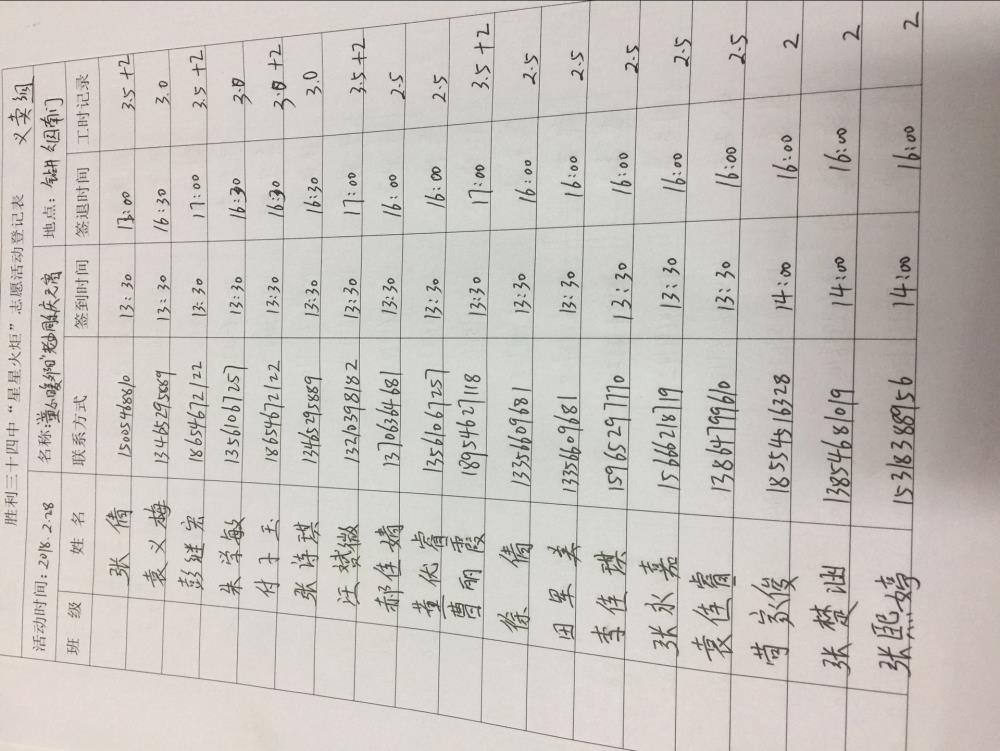 胜利三十四中“星星火炬”志愿活动登记表 义卖组
活动时间：2018.2.28 名称： 地点：
班 级 姓 名 联系方式 签到时间 签退时间 工时记录
张 倩 15005468810 13:30 17:00 3.5+2
袁义梅 13465295889 13:30 16:30 3.0
彭继宏 18654672122 13:30 17:00 3.5+2
朱学敏 13561067257 13:30 16:30 3.0
付于玉 18654672122 13:30 16:30 3.0+2
张诗琪 13465295889 13:30 16:30 3.0
汪斌微 13210398182 13:30 17:00 3.5+2
郝佳婧 13706364681 13:30 16:00 2.5
董代睿 13561067257 13:30 16:00 2.5
曹丽霞 18954627118 13:30 17:00 3.5+2
徐 倩 13356609681 13:30 16:00 2.5
田里美 13356609681 13:30 16:00 2.5
李佳琪 15965297770 13:30 16:00 2.5
张永嘉 15666218719 13:30 16:00 2.5
袁佳睿 13864799610 13:30 16:00 2.5
苟家俊 18554516328 14:00 16:00 2
张楚涵 13854681019 14:00 16:00 2
张熙婷 15318388956 14:00 16:00 2